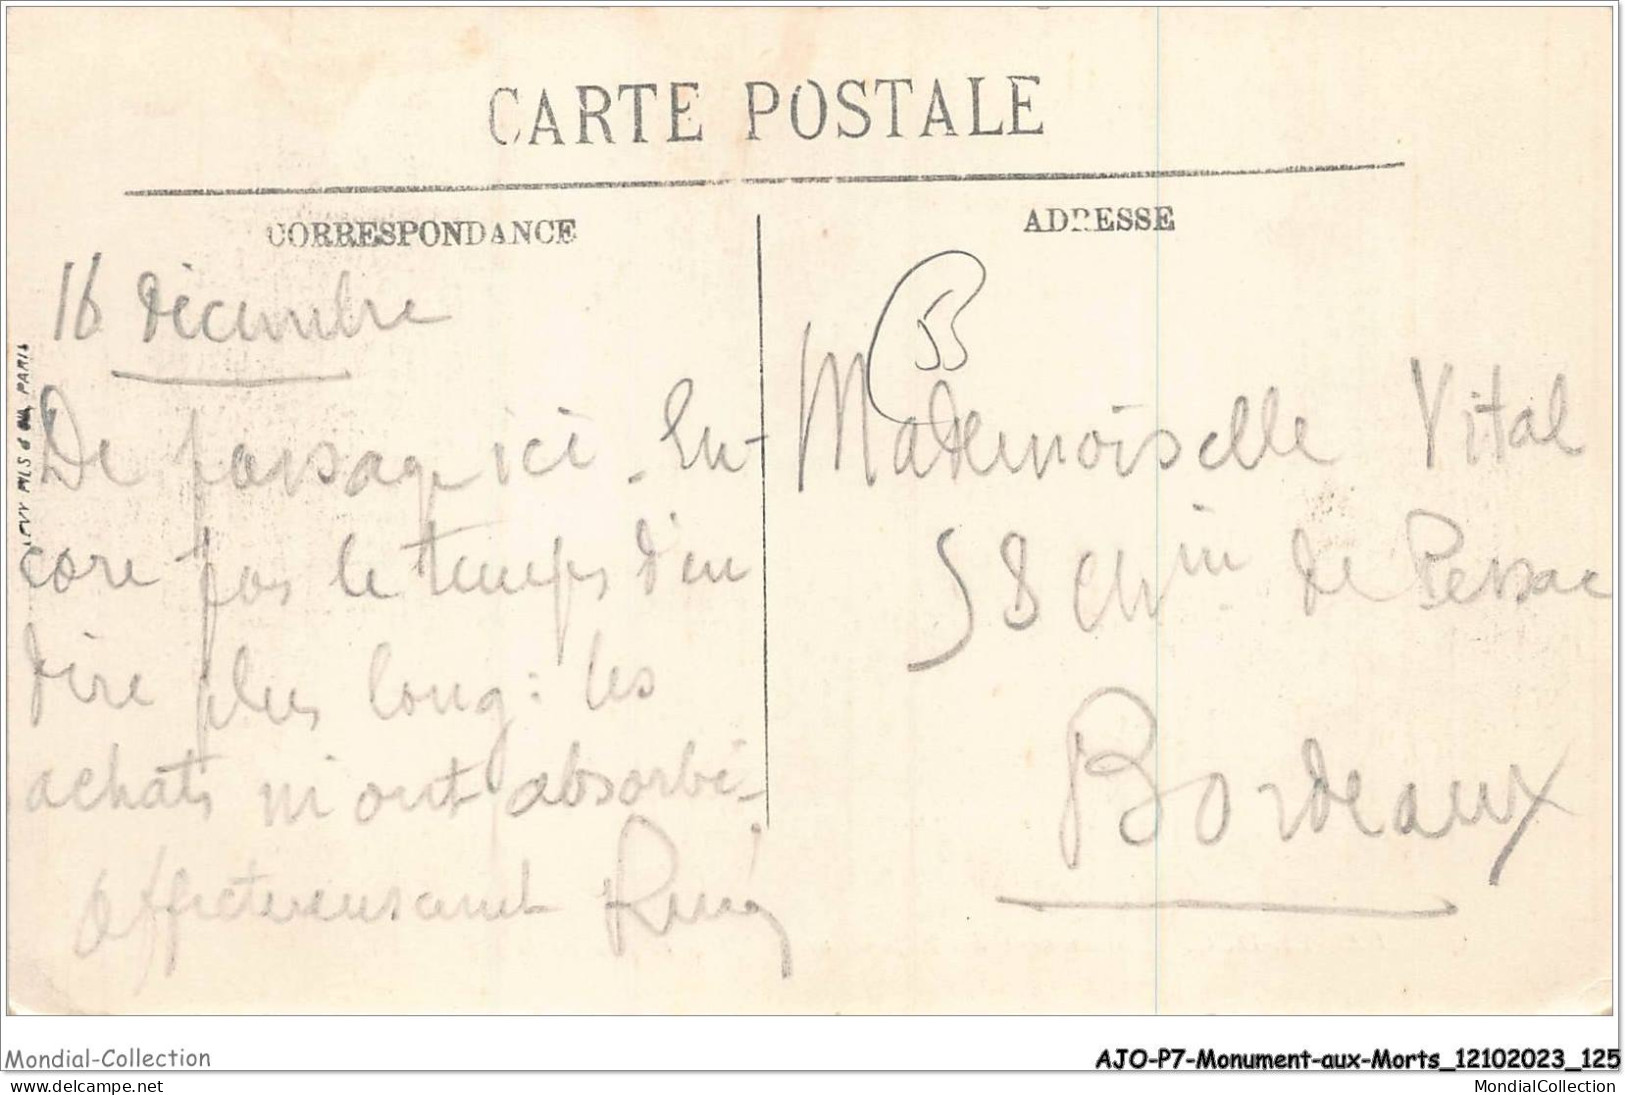 CARTE POSTALE
CORRESPONDANCE
ADRESSE
16 décembre
De passage ici. En-
core pas le temps d'en
dire plus long : les
achats m'ont absorbé.
Affectueusement
Mademoiselle Vital
58 Ch^in de Pessac
Bordeaux
LEVY FILS & Cie, PARIS
Mondial-Collection
AJO-P7-Monument-aux-Morts_12102023_125
www.delcampe.net
MondialCollection